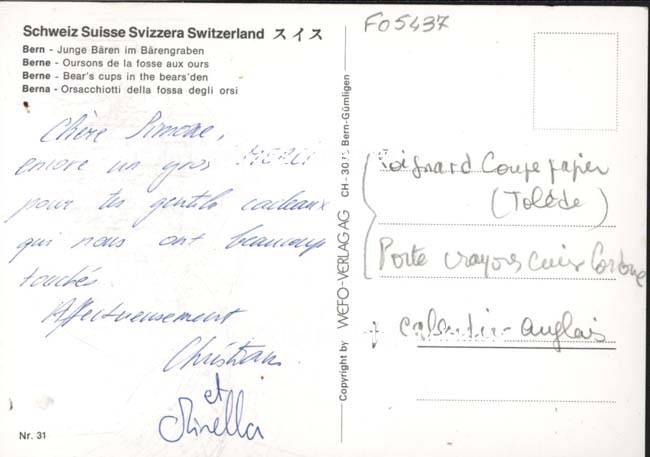 Schweiz Suisse Svizzera Switzerland スイス
Bern - Junge Bären im Bärengraben
Berne - Oursons de la fosse aux ours
Berne - Bear's cups in the bears'den
Berna - Orsacchiotti della fossa degli orsi
Chère Simone,
encore un gros MERCI
pour tes gentils cadeaux
qui nous ont beaucoup
touchés.
Affectueusement
Christian
et
Mirella
Nr. 31
Copyright by WEFO-VERLAG AG CH - 30 Bern-Gümligen
FO5437
Poignard Coupe papier
(Tolède)
Porte crayons cuir Cordoue
+ calendrier-anglais